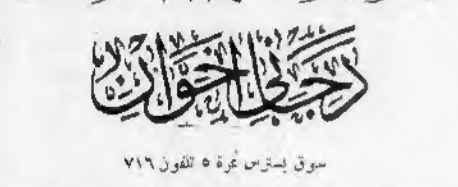 دجاني اخوان
سوق بسترس نمرة ٥ تلفون ٧١٦